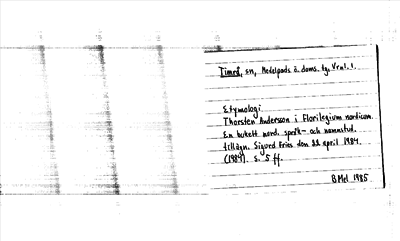 Timrå, sn, Medelpads ö. doms. tg. Vnl. 1.
Etymologi
Thorsten Andersson i Florilegium nordicum.
En bukett nord. språk- och namnstud.
tillägn. Sigurd Fries den 22 april 1984.
(1984). s. 5 ff.
B Mel 1985